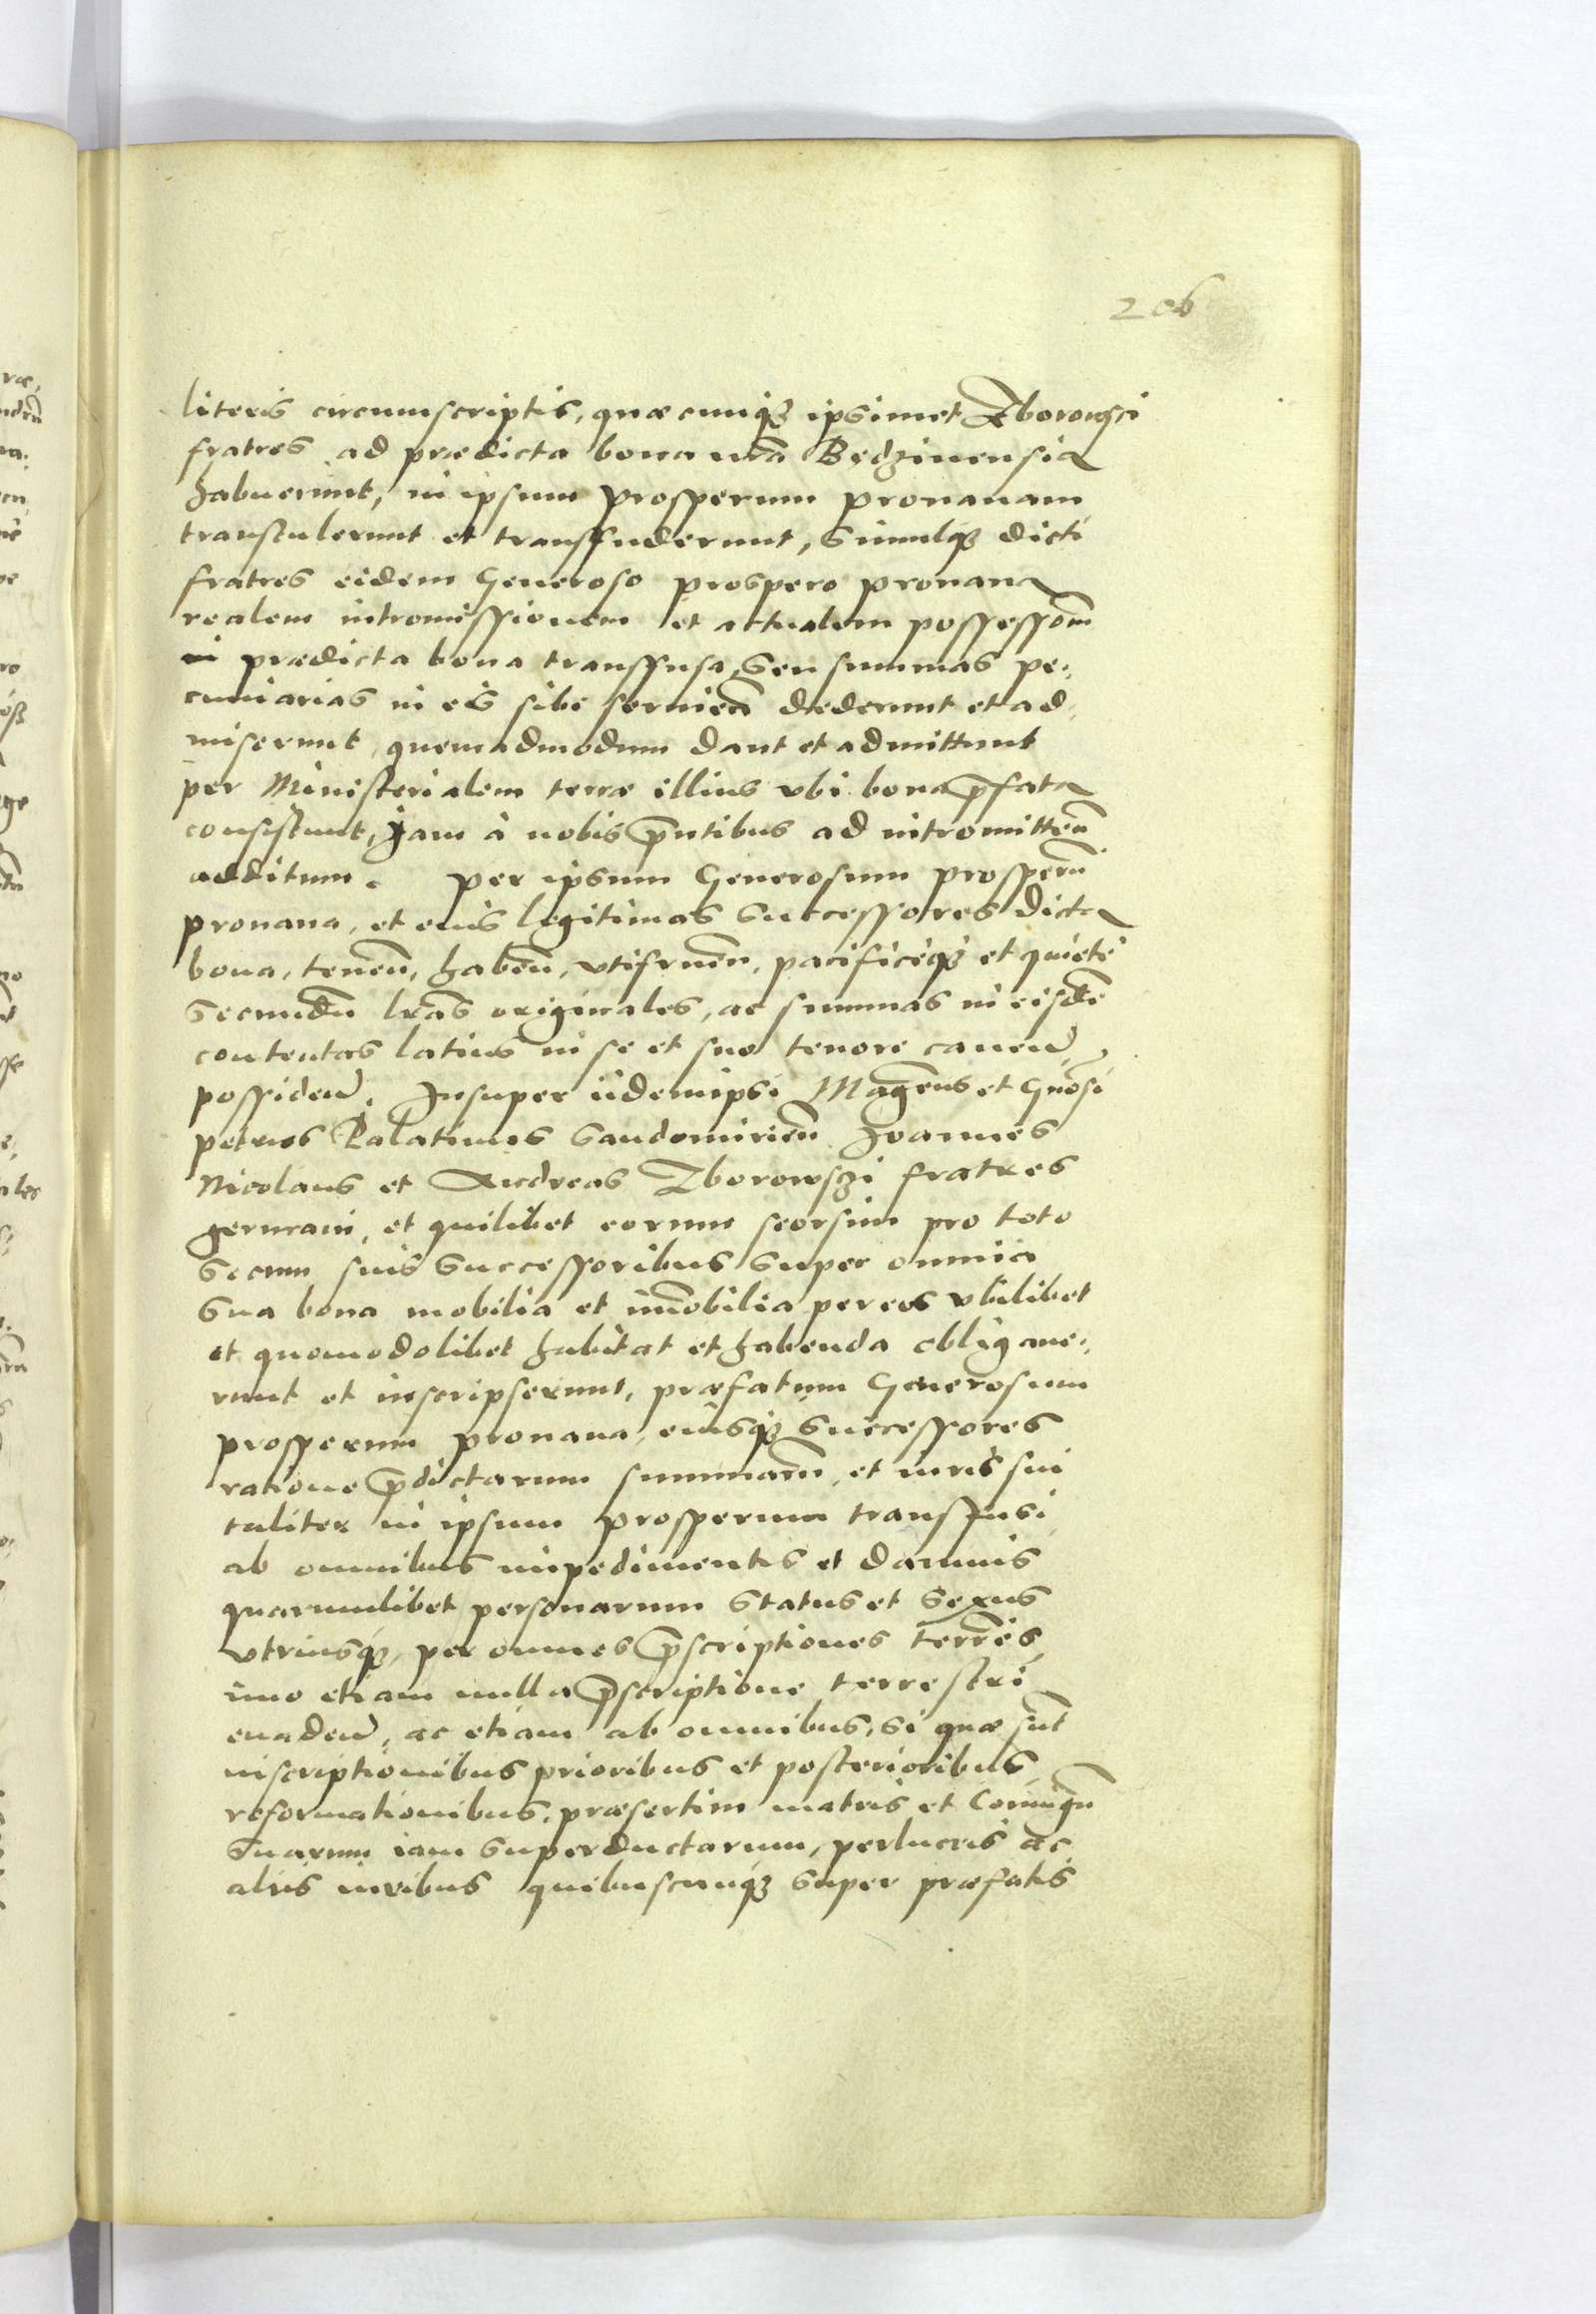 206
literis circumscriptis, quæcunqꝫ ipsimet Zborowsci
fratres ad prædicta bona nrã Bedzinensia
habuerunt, in ipsum Prosperum Pronanam
transtulerunt et transfuderunt, simulqꝫ dicti
fratres eidem Generoso Prospero Pronana
realem intromissionem et actualem possessiom̃
in prædicta bona transfusa, seu summas pe-
cuniarias in eis sibi servien̄ dederunt et ad
miserunt, quemadmodum dant et admittunt
per Ministerialem terræ illius vbi bona p̄fata
consistunt, Jam à nobis p̄ntibus ad intromitten̄
additum. Per ipsum Generosum Prosperū
Pronana, et eius legitimos successores dicta
bona, tenen̄, haben̄, vtifruen̄, pacificeqꝫ et quietè
secundū lrãs originales, ac summas in eisdē
contentas latius in se et suo tenore canen̄
possiden̄. Insuper iidemipsi Mag̃cus et Gnõsi
Petrus Palatinus Sandomirien̄ Joannes
Nicolaus et Andreas Zborowszi fratres
germani, et quilibet eorum seorsim pro toto
secum suis successoribus super omnia
sua bona mobilia et im̄obilia per eos vbilibet
et quomodolibet habita et habenda obligave-
runt et inscripserunt, præfatum Generosum
Prosperum Pronana, eiusqꝫ successores
ratione p̄dictarum summarū, et iuris sui
taliter in ipsum Prosperum transfusi
ab omnibus impedimentis et damnis
quarumlibet personarum status et sexus
vtriusqꝫ, per omnes p̄scriptiones terrēs,
imo etiam nulla p̄scriptione terrestri
evaden̄, ac etiam ab omnibus, si quæ sūt
inscriptionibus prioribus et posterioribus
reformationibus, præsertim matris et Coniugū
suarum iam superductarum, perlucris ac
aliis iuribus quibuscunqꝫ super præfatis